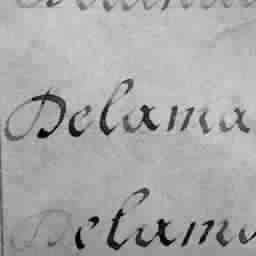 Delama
Delama